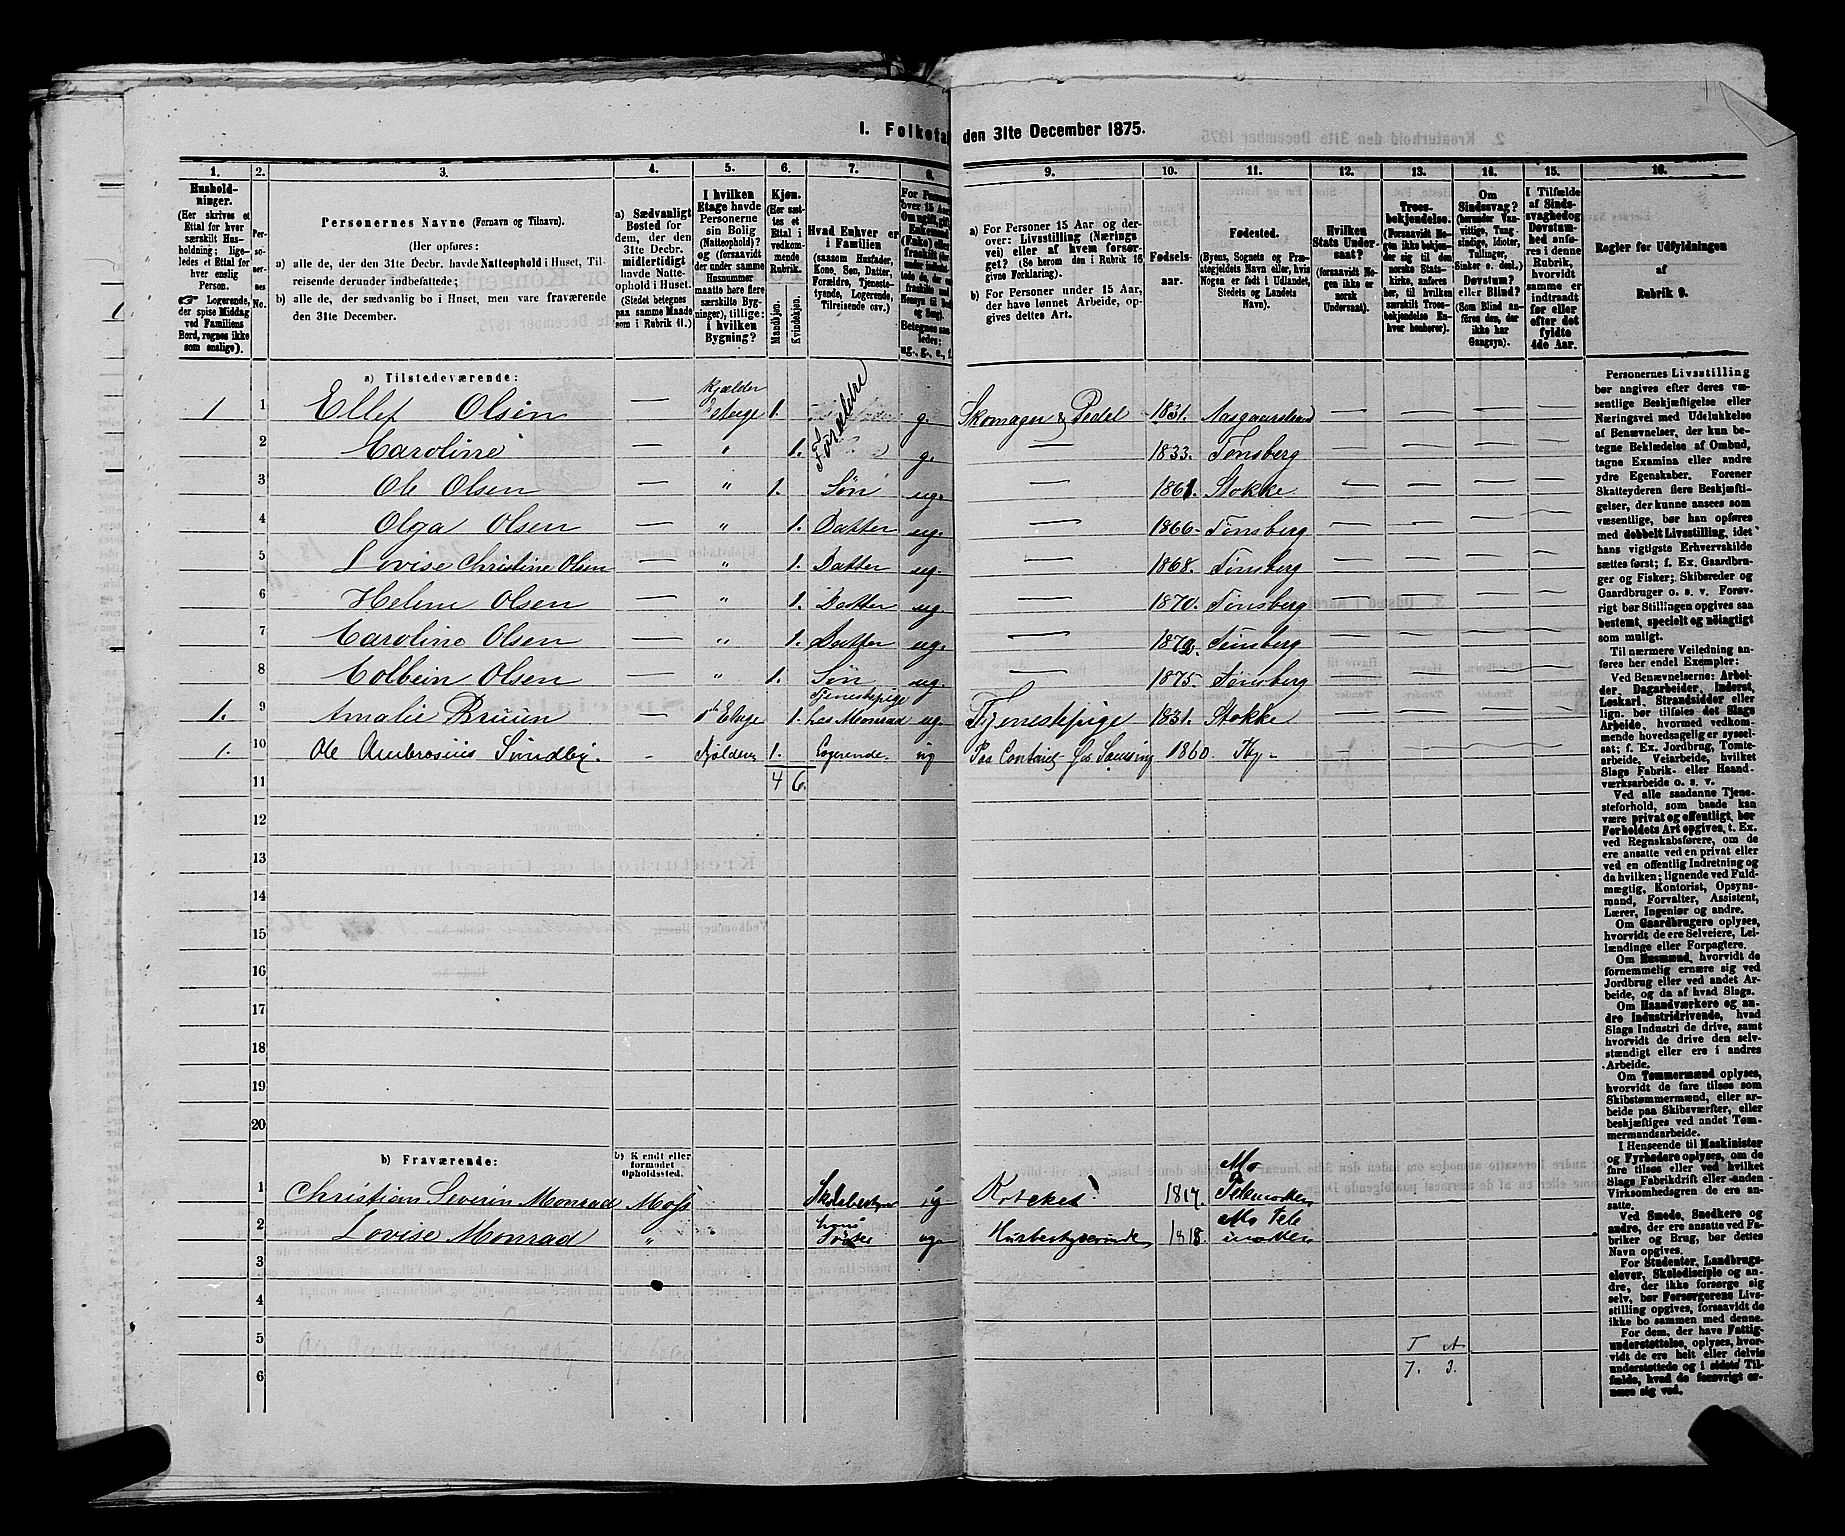 I. Folketal den 31te December 1875.
1. 2. 3. 4. 5. 6. 7. 8. 9. 10. 11. 12. 13. 14. 15. 16.
Hushold-
ninger.
(Her skrives et
Ettal for hver
særskilt Hus-
holdning; lige-
ledes et Ettal for
hver enslig
Person.
Logerende,
der spise Middag
ved Familiens
Bord, regnes ikke
som enslige).
Per-
so-
ner-
nes
No.
Personernes Navne (Fornavn og Tilnavn).
(Her opføres:
a) alle de, der den 31te Decbr. havde Natteophold i Huset, Til-
reisende derunder indbefattede;
b) alle de, der sædvanlig bo i Huset, men vare fraværende
den 31te December.
a) Sædvanligt
Bosted for
dem, der den
31te Decbr.
midlertidigt
havde Natte-
ophold i Huset.
(Stedet betegnes
paa samme Maade
som i Rubrik 11.)
I hvilken
Etage havde
Personerne
sin Bolig
(Natteophold)?
og (forsaavidt
der under samme
Husnummer
maatte høre flere
særskilte Byg-
ninger), tillige:
i hvilken
Bygning?
Kjøn.
(Her sæt-
tes et
Ettal i
vedkom-
mende
Rubrik.
Mandkjøn.
Kvindekjøn.
Hvad Enhver er
i Familien
(saasom Husfader,
Kone, Søn, Datter,
Forældre, Tjeneste-
tyende, Logerende,
Tilreisende osv.)
a) For Personer 15 Aar og der-
over: Livsstilling (Nærings
vei) eller af hvem forsør-
get? (Se herom den i Rubrik 16
givne Forklaring).
b) For Personer under 15 Aar,
der have lønnet Arbeide, op-
gives dettes Art.
Fødsels-
aar.
Fødested.
(Byens, Sognets og Præ-
stegjeldets Navn eller, hvis
Nogen er født i Udlandet,
Stedets og Landets
Navn).
Hvilken
Stats Under-
saat?
(forsaavidt No-
gen ikke er
norsk
Undersaat).
Troes-
bekjendelse.
(Forsaavidt No-
gen ikke bekjen-
der sig til den
norske Stats-
kirke, anføres
her, til hvilken
særskilt Troes-
bekjendelse En-
hver henhører).
Om
Sindssvag?
(herunder Van-
vittige, Tung-
sindige, Idioter,
Tullinger,
Sinker o. desl.)
Døvstum?
eller Blind?
(Som Blind an-
føres den, der
ikke har
Gangsyn).
I Tilfælde
af Sinds-
svaghed og
Døvstum-
hed anfø-
res i denne
Rubrik,
hvorvidt
samme er
indtraadt
før eller
efter det
fyldte
4de Aar.
Regler for Udfyldningen
af
Rubrik 9.
a) Tilstedeværende:
1 1 Ellef Olsen — Kjælder Etage 1. Forældre g. Skomager & Pedel 1831. Aasgaarstrand
2 Caroline — " 1. g. — 1833. Tønsberg
3 Ole Olsen — " 1. Søn ug. — 1861. Stokke — — — —
4 Olga Olsen — " 1. Datter ug. — 1866. Tønsberg — — — —
5 Lovise Christine Olsen — " 1. Datter ug. — 1868. Tønsberg — — — —
6 Helene Olsen — " 1. Datter ug. — 1870. Tønsberg — — — —
7 Caroline Olsen — " 1. Datter ug. — 1872. Tønsberg — — — —
8 Colbein Olsen — " 1. Søn ug. — 1875. Tønsberg — — — —
1. 9 Amalie Bruun — Etage 1. Tjenestepige hos Monrad ug. Tjenestepige 1831. Stokke
1. 10 Ole Ambrosius Sundby. — Kjælderen 1. Logerende. ug Paa Contoiret 1860.
11 4 6.
12
13
14
15
16
17
18
19
20
b) Fraværende: b) Kendt eller
formodet
Opholdssted.
1 Christian Severin Monrad Moss Skolebestyrer ug 1817. Mo Telemarken
2 Lovise Monrad " hans Søster ug Husbestyrerinde 1818. Mo Telemarken
3
4
5 T A
6 7. 3.
Personernes Livsstilling
bør angives efter deres væ-
sentlige Beskjæftigelse eller
Næringsvei med Udelukkelse
af Benævnelser, der kun be-
tegne Beklædelse af Ombud,
tagne Examina eller andre
ydre Egenskaber. Forener
Skatteyderen flere Beskjæfti-
gelser, der kunne ansees som
væsentlige, bør han opføres
med dobbelt Livsstilling, idet
hans vigtigste Erhvervskilde
sættes først; f. Ex. Gaardbru-
ger og Fisker; Skibsreder og
Gaardbruger o. s. v. Forøv-
rigt bør Stillingen opgives saa
bestemt, specielt og nöiagtigt
som muligt.
Til nærmere Veiledning an-
føres her endel Exempler:
Ved Benævnelserne: Arbei-
der, Dagarbeider, Inderst,
Løskarl, Strandsidder eller
lign. bør tilføies det Slags
Arbeide, hvormed vedkom-
mende hovedsagelig er syssel-
sat; f. Ex. Jordbrug, Tomte-
arbeide, Veiarbeide, hvilket
Slags Fabrik- eller Haand-
værksarbeide o. s. v.
Ved alle saadanne Tjene-
steforhold, som baade kan
være privat og offentligt, bør
Forholdets Art opgives, t. Ex.
ved Regnskabsførere, om de
ere ansatte ved en privat eller
ved en offentlig Indretning og
da hvilken; lignende ved Fuld-
mægtig, Kontorist, Opsyns-
mand, Forvalter, Assistent,
Lærer, Ingeniør og andre.
Om Gaardbrugere oplyses,
hvorvidt de ere Selveiere, Lei-
lændinge eller Forpagtere.
Om Husmænd, hvorvidt de
fornemmelig ernære sig ved
Jordbrug eller ved andet Ar-
beide, og da af hvad Slags.
Om Haandværkere og an-
dre Industridrivende, hvad
Slags Industri de drive, samt
hvorvidt de drive den selv-
stændigt eller ere i andres
Arbeide.
Om Tømmermænd oplyses,
hvorvidt de fare tilsøs som
Skibstømmermænd, eller ar-
beide paa Skibsværfter, eller
beskjæftiges ved andet Tøm-
mermandsarbeide.
I Henseende til Maskinister
og Fyrbødere oplyses, om de
fare tilsøs eller ved hvilket
Slags Fabrikdrift eller anden
Virksomhedsgren de ere an-
satte.
Ved Smede, Snedkere og
andre, der ere ansatte ved Fa-
briker og Brug, bør dettes
Navn opgives.
For Studenter, Landbrugs-
elever, Skoledisciple og an-
dre, der ikke forsørge sig
selv, bør Forsørgerens Livs-
stilling opgives, forsaavidt de
ikke bo sammen med denne.
For dem, der have Fattig-
understøttelse, oplyses, hvor-
vidt de ere helt eller delvis
understøttede og i sidste Til-
fælde, hvad de forøvrigt er-
nære sig ved.